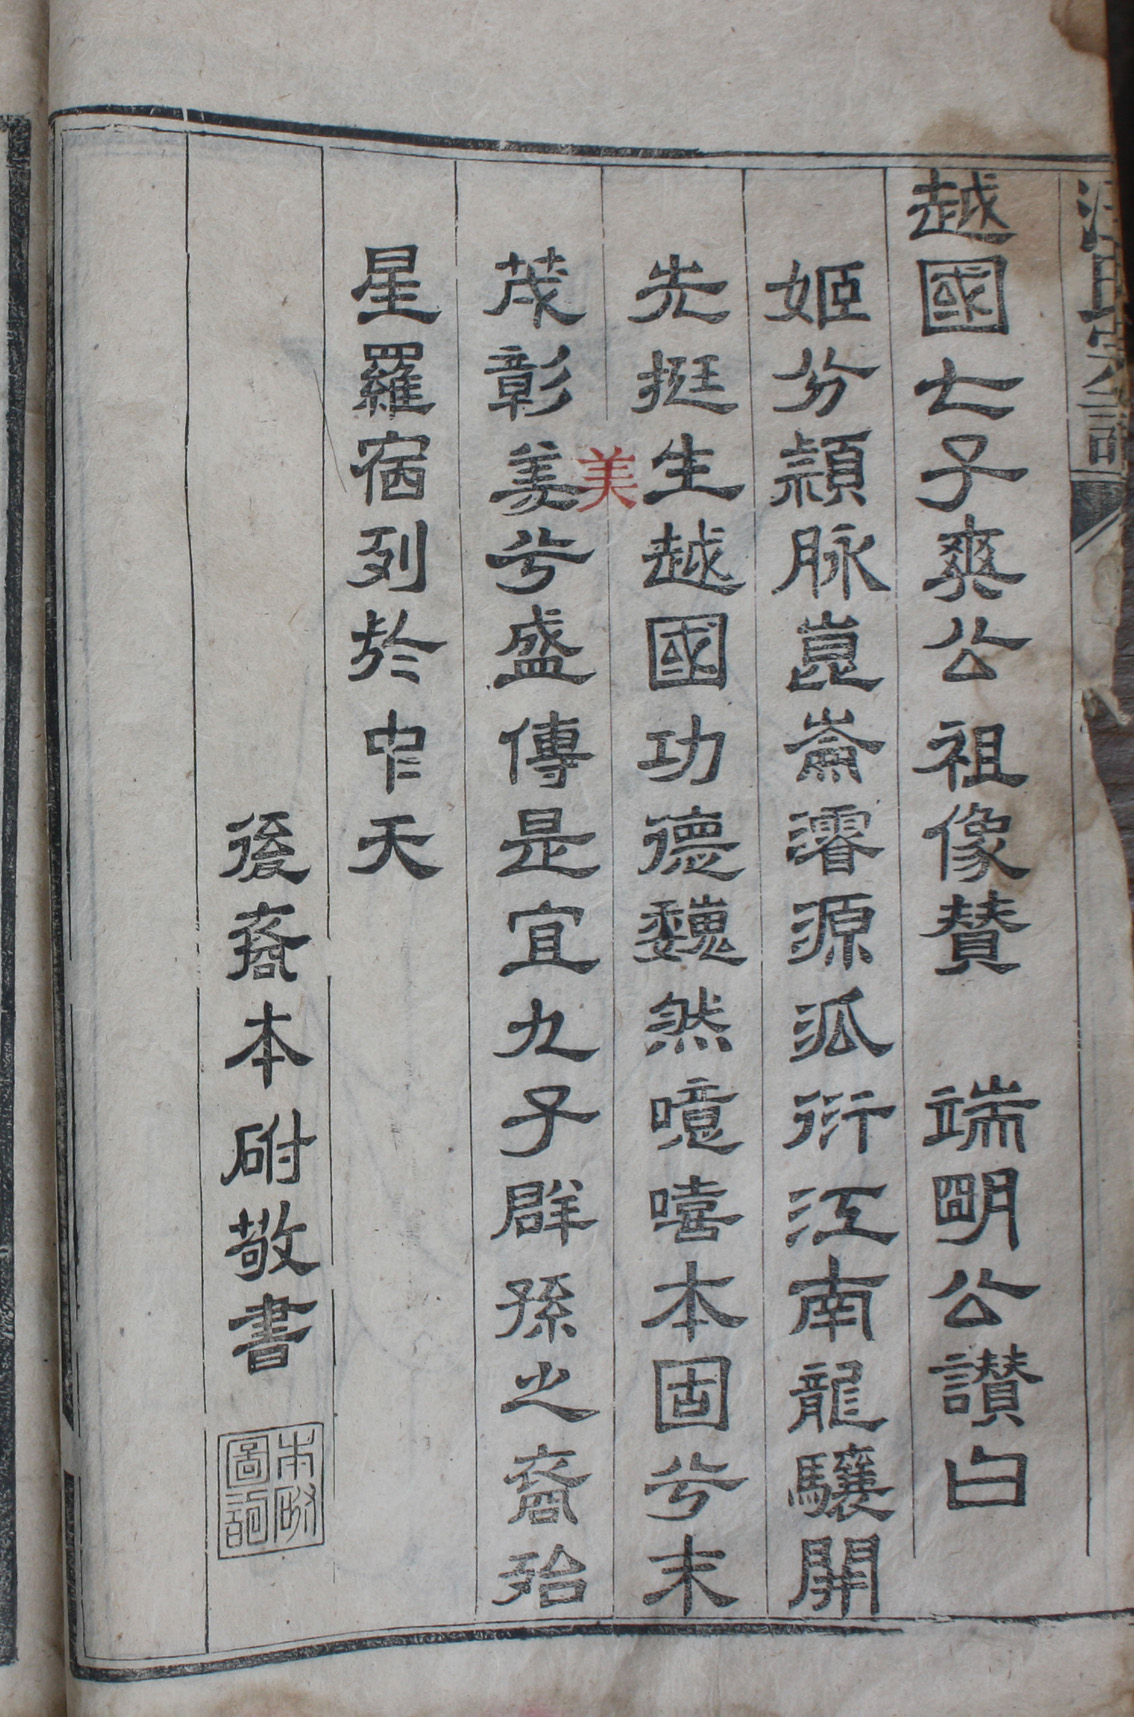 汪氏宗譜
越國七子爽公祖像贊 端明公讃曰
姬分頴脉崑崙濬源派衍江南龍驤開
先挺生越國功德巍然噫嘻本固兮末
茂彰美兮盛傳是宜九子群孫之裔殆
美
星羅宿列於中天
後裔本硎敬書